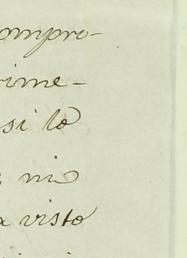 ompro-
rime-
si lo
ni
a visto